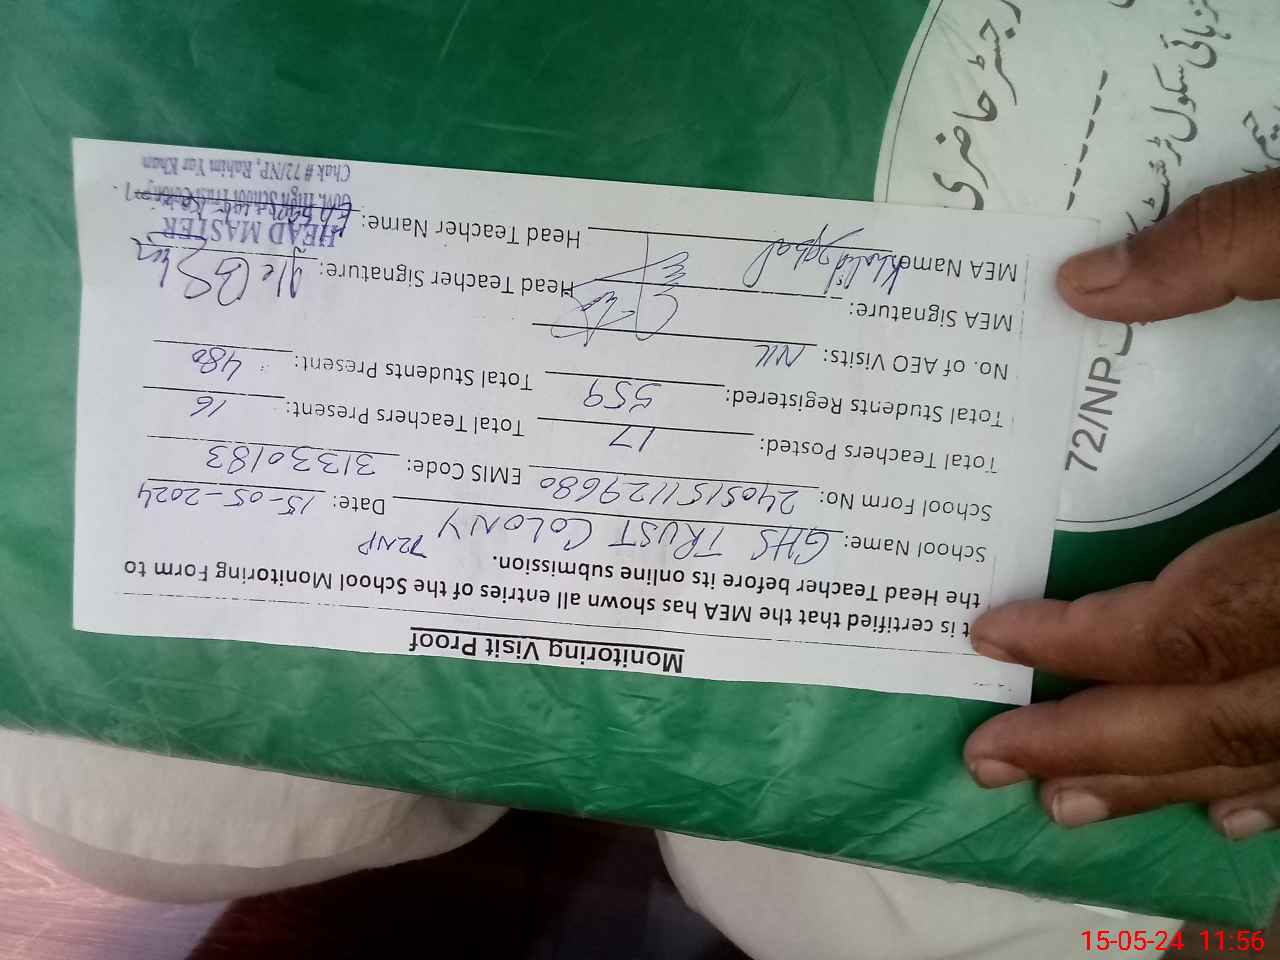 Monitoring Visit Proof
It is certified that the MEA has shown all entries of the School Monitoring Form to
the Head Teacher before its online submission.
School Name: GHS TRUST COLONY 72NP Date: 15-05-2024
School Form No: 2405151129680 EMIS Code: 31330183
Total Teachers Posted: 17 Total Teachers Present: 16
Total Students Registered: 559 Total Students Present: 480
No. of AEO Visits: NIL
MEA Signature: Head Teacher Signature:
MEA Name: Khalid Iqbal Head Teacher Name:
HEAD MASTER
Govt. High School Trust Colony
Chak # 72/NP, Rahim Yar Khan
رجسٹر حاضری
ہائی سکول ٹرسٹ
72/NP
15-05-24 11:56